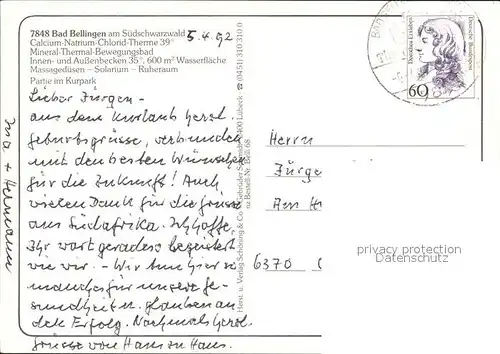 7848 Bad Bellingen am Südschwarzwald
Calcium-Natrium-Chlorid-Therme 39°
Mineral-Thermal-Bewegungsbad
Innen- und Außenbecken 35°, 600 m² Wasserfläche
Massagedüsen – Solarium – Ruheraum
Partie im Kurpark
5.4.92
Lieber Jürgen –
aus dem Kurlaub herzl.
Geburtsgrüsse, verbunden
mit den besten Wünschen
für die Zukunft! Auch
vielen Dank für die Grüsse
aus Südafrika. Ich hoffe,
Ihr wart geradeso begeistert
wie wir. – Wir tun hier so
manches für unsere Ge-
sundheit u. glauben an
den Erfolg. Nochmals herzl.
Grüsse von Haus zu Haus.
Ina + Hermann
Herst. u. Verlag Schöning & Co + Gebrüder Schmidt, 2400 Lübeck ☎ (0451) 310 310
Bestell-Nr. Bell 68
Deutsche Bundespost
Dorothea Erxleben
60
Herrn
Jürge
Am H
6370
privacy protection
Datenschutz